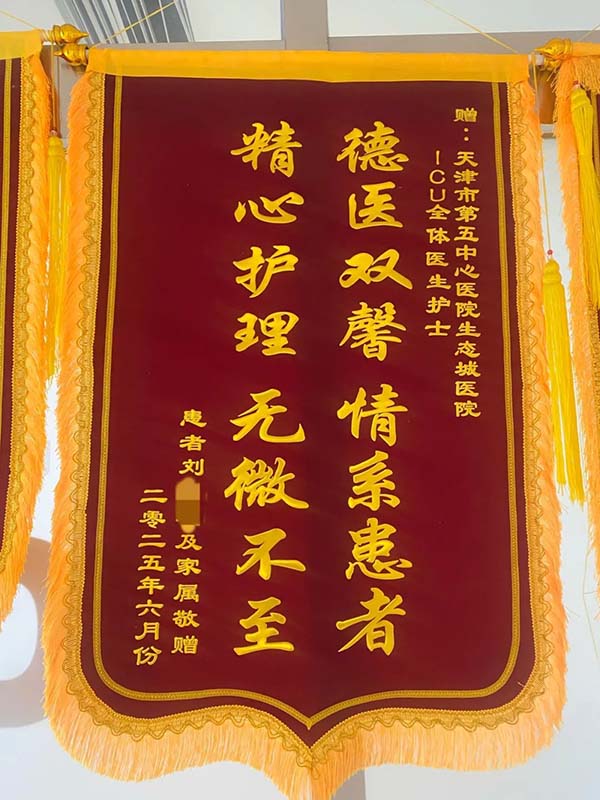 赠：天津市第五中心医院生态城医院
ICU全体医生护士
德医双馨 情系患者
精心护理 无微不至
患者刘 及家属敬赠
二零二五年六月份